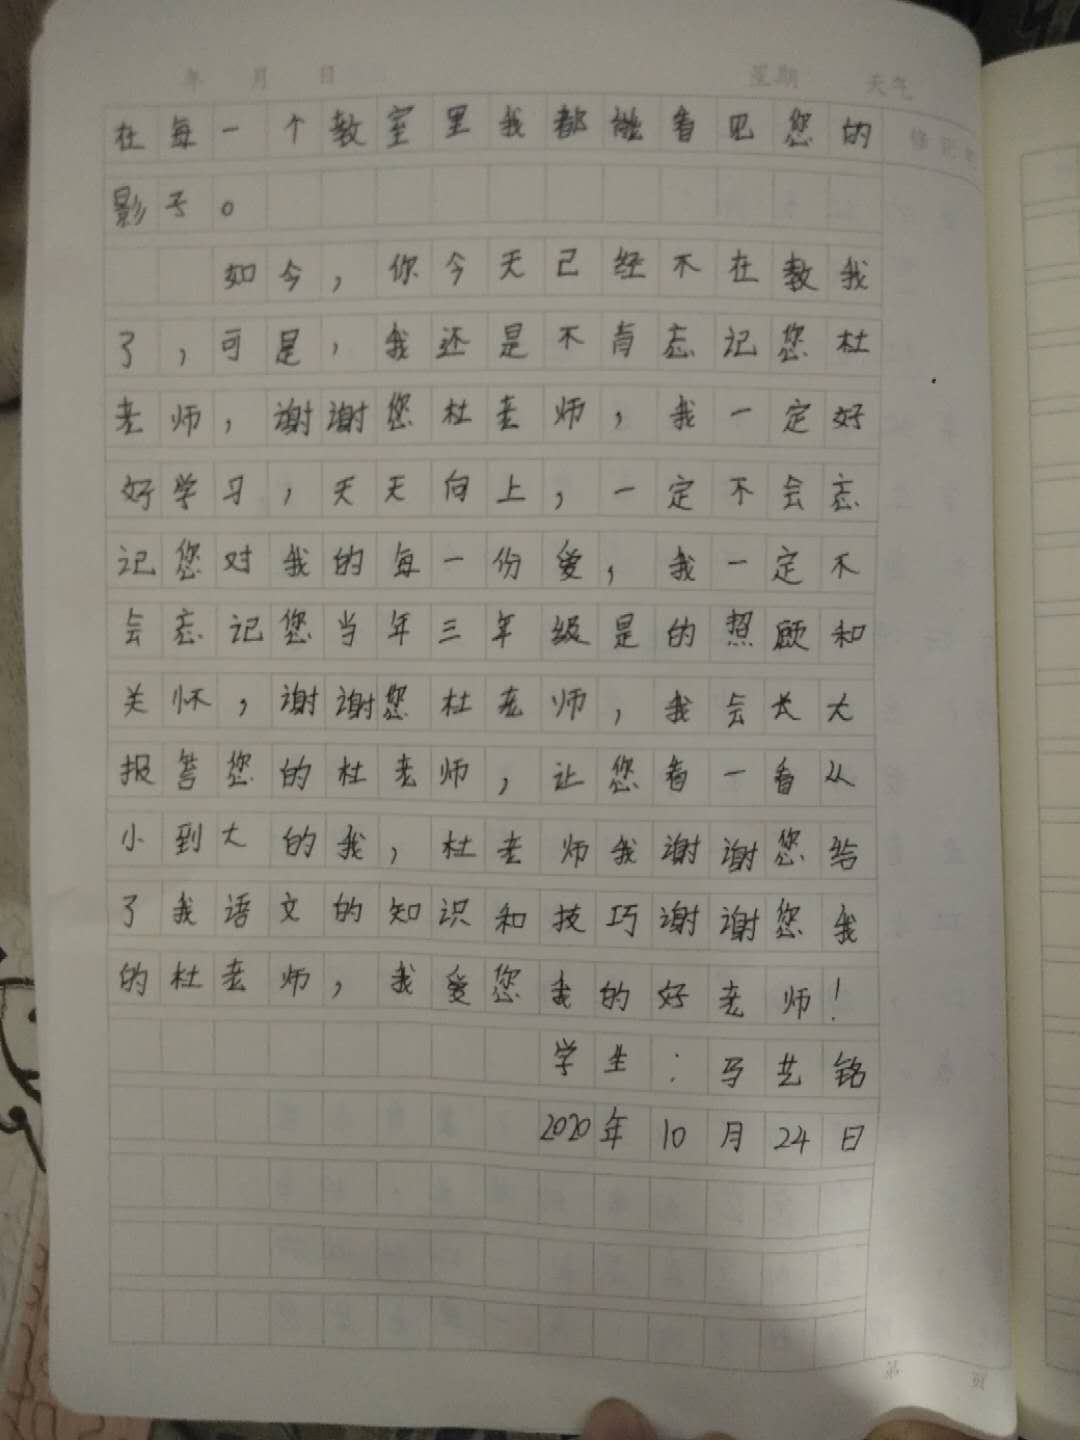 年 月 日 星期 天气
在每一个教室里我都能看见您的
影子。
如今，你今天已经不在教我
了，可是，我还是不肯忘记您杜
老师，谢谢您杜老师，我一定好
好学习，天天向上，一定不会忘
记您对我的每一份爱，我一定不
会忘记您当年三年级是的照顾和
关怀，谢谢您杜老师，我会长大
报答您的杜老师，让您看一看从
小到大的我，杜老师我谢谢您给
了我语文的知识和技巧谢谢您我
的杜老师，我爱您我的好老师！
学生：马艺铭
2020年10月24日
第 页